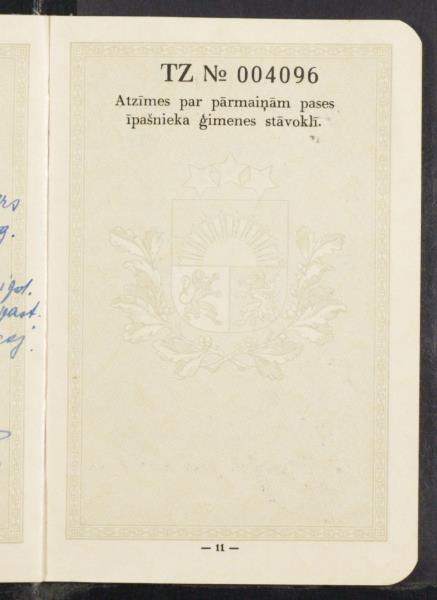 TZ № 004096
Atzīmes par pārmaiņām pases
īpašnieka ģimenes stāvoklī.
— 11 —